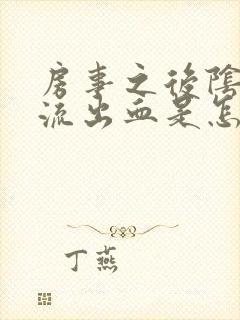 房事之後陰
流出血是怎
丁燕